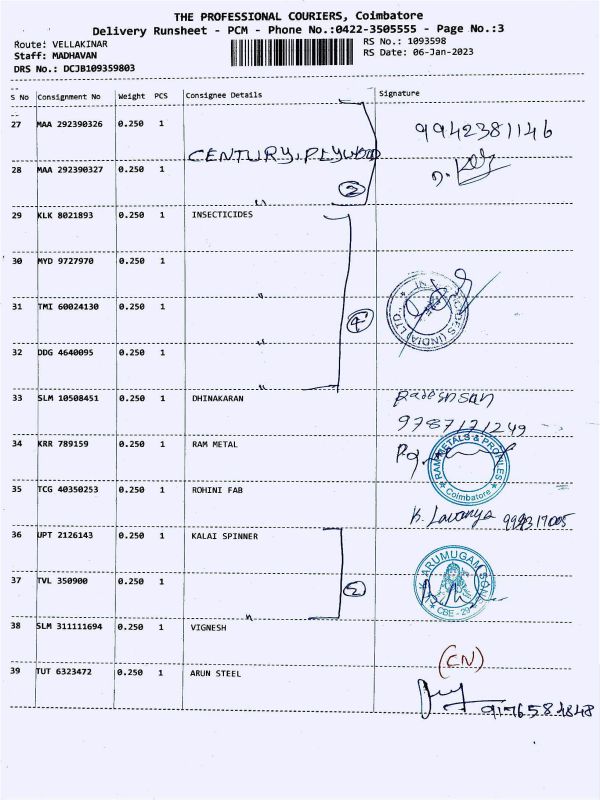 THE PROFESSIONAL COURIERS, Coimbatore
Delivery Runsheet - PCM - Phone No.:0422-3505555 - Page No.:3
Route: VELLAKINAR
RS No.: 1093598
Staff: MADHAVAN
RS Date: 06-Jan-2023
DRS No.: DCJB109359803
S No Consignment No Weight PCS Consignee Details Signature
27 MAA 292390326 0.250 1
9942381146
CENTURY PLYWOOD
28 MAA 292390327 0.250 1
2
29 KLK 8021893 0.250 1 INSECTICIDES
30 MYD 9727970 0.250 1
31 TMI 60024130 0.250 1
4
(INDIA) LTD
32 DDG 4640095 0.250 1
33 SLM 10508451 0.250 1 DHINAKARAN
9787171249
34 KRR 789159 0.250 1 RAM METAL
RAM METALS & PROFILES
Coimbatore
35 TCG 40350253 0.250 1 ROHINI FAB
K. Lavanya
36 UPT 2126143 0.250 1 KALAI SPINNER
ARUMUGAM SONS
37 TVL 350900 0.250 1
2
CBE - 29
38 SLM 311111694 0.250 1 VIGNESH
(CN)
39 TUT 6323472 0.250 1 ARUN STEEL